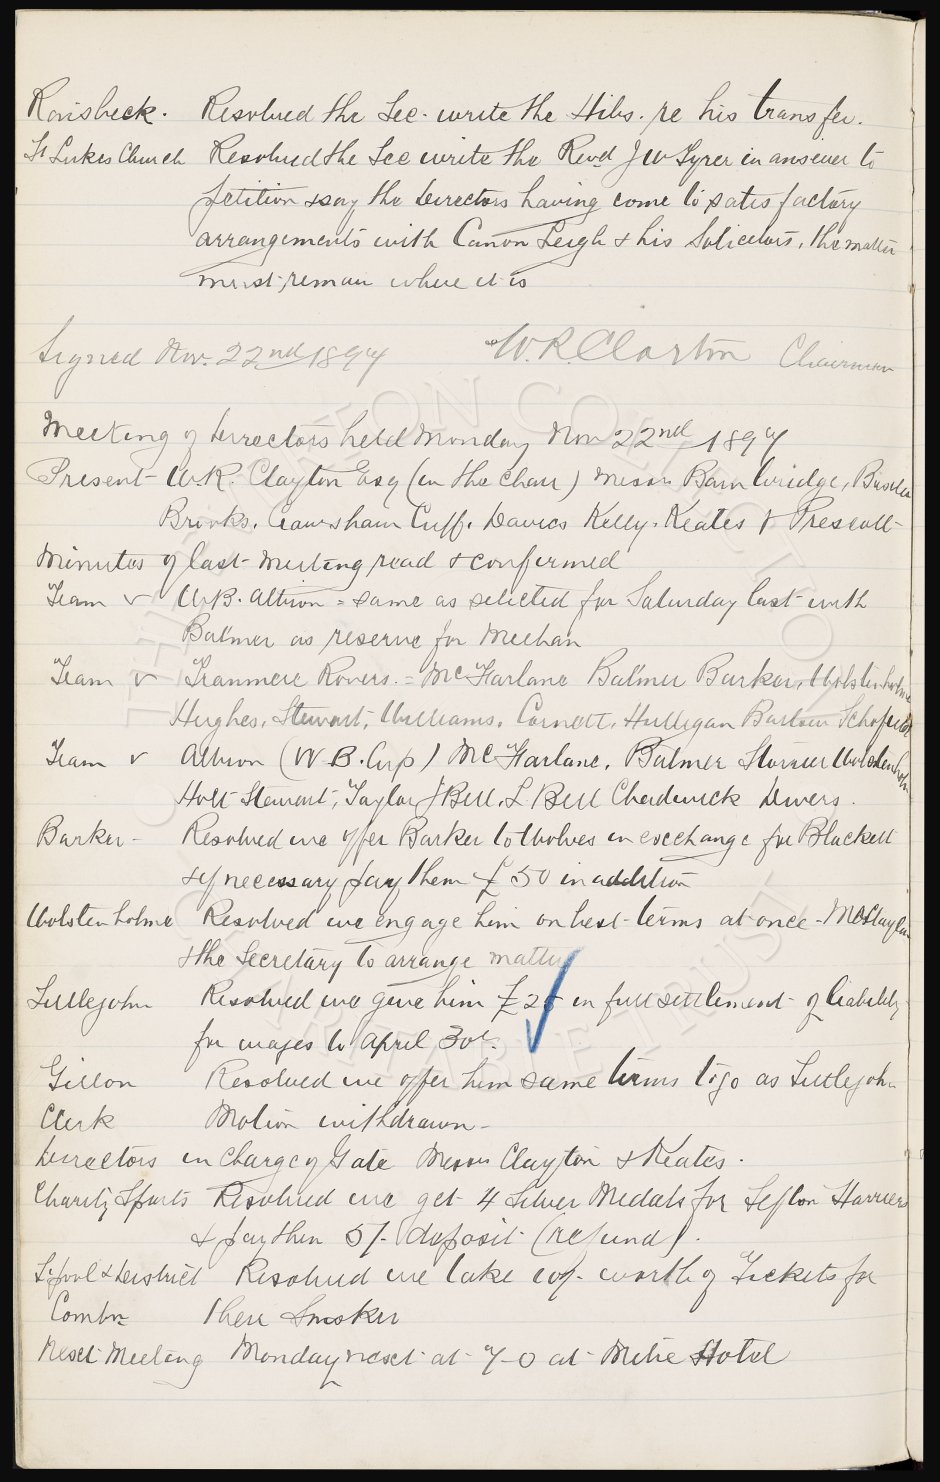 Resolved the Sec. write the Hibs. re his transfer.
St Lukes Church Resolved the Sec write the Revd J W Tyrer in answer to
petition & say the Directors having come to satisfactory
arrangements with Canon Leigh & his Solicitors, the matter
must remain where it is
Signed Nov. 22nd 1897 W. R. Clayton Chairman
Meeting of Directors held Monday Nov 22nd 1897
Present - W.R. Clayton Esq (in the Chair) Messrs Bainbridge,
Brooks. Crawsham Cuff. Davies Kelly. Keates & Prescott
Minutes of last meeting read & confirmed
Team v W.B. Albion = same as selected for Saturday last with
Balmer as reserve for Meehan
Team v Tranmere Rovers. = McFarlane Balmer Barker, Wolstenholme
Hughes, Stewart, Williams, Cornett, Hulligan Barlow Schofield
Team v Albion (W B. Cup) McFarlane, Balmer Storrier Wolstenholm
Holt Stewart, Taylor J Bell, L Bell Chadwick Divers.
Barker - Resolved we offer Barker to Wolves in exchange for Blackett
& if necessary pay them £50 in addition
Wolstenholme Resolved we engage him on best terms at once -
& the Secretary to arrange matter
Littlejohn Resolved we give him £25 in full settlement of liability
for wages to April 30th.
Gillon Resolved we offer him same terms to go as Littlejohn
Clerk Motion withdrawn -
Directors in charge of Gate Messrs Clayton & Keates.
Charity Sports Resolved we get 4 Silver Medals for Sefton Harriers
& pay then 5/- deposit (refund).
L'pool & District Resolved we take 10/- worth of Tickets for
Combn their Smoker
Next Meeting Monday next at 7-0 at Hotel